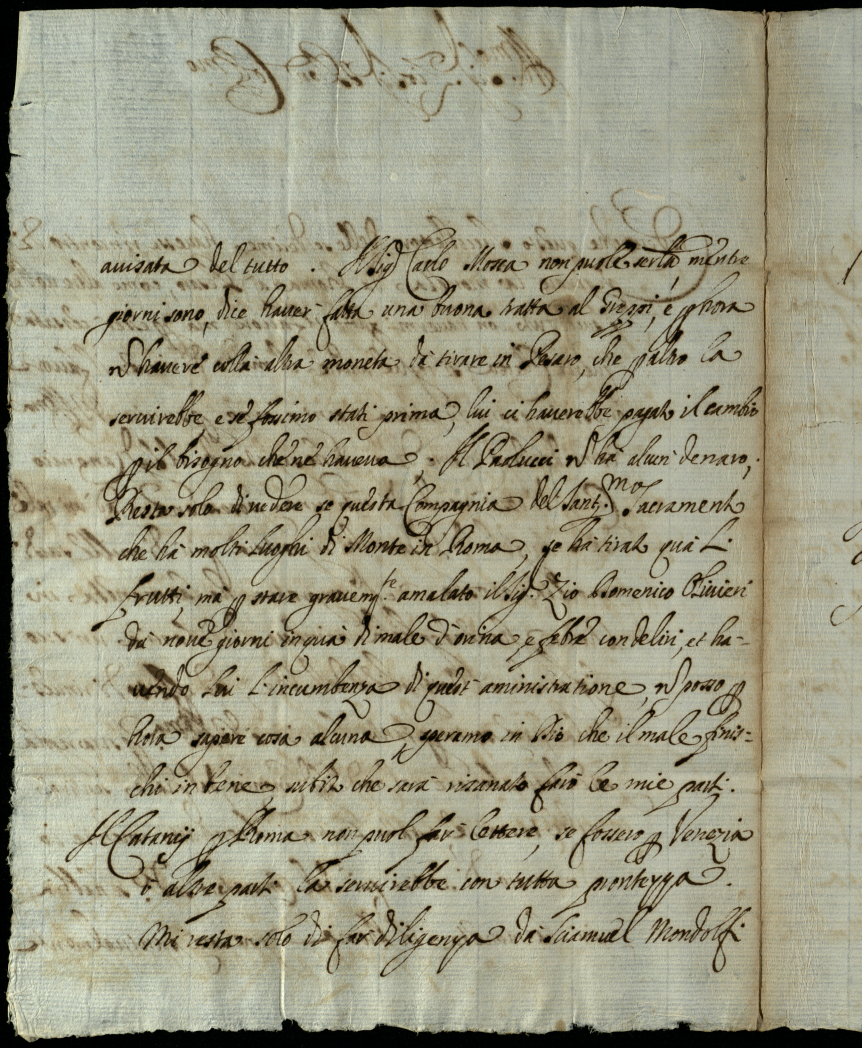 auisata del tutto. Il Sig.r Carlo Mosca non puole serla, mentre
giorni sono, dice hauer fatta una buona tratta al Greppi, e p hora
nõ hauere colla altra moneta da tirare in Pesaro, che p altro la
seruirebbe, e se fossimo stati prima, lui ci hauerebbe pagato il cambio
p il bisogno che ne haueua. Il Paolucci nõ hà alcun denaro,
Resta solo di uedere se questa Compagnia del Sant.mo Sacramento
che hà molti Luoghi di Monte in Roma, se hà tirato quà li
frutti, mà p stare grauem.te amalato il Sig.r Zio Domenico Oliuieri
da noue giorni in quà di male d'orina e febre con deliri, et ha-
uendo Lui l'incumbenza di quest aministratione, nõ posso p
hora sapere cosa alcuna, speramo in Dio che il male finis-
chi in bene, e subito che sarà risanato farò le mie parti.
Il Catanij p Roma non puol far lettere, se fossero p Venezia
ò altre parti la seruirebbe con tutta prontezza.
Mi resta solo di far diligenza da Sciamuel Mondolfi